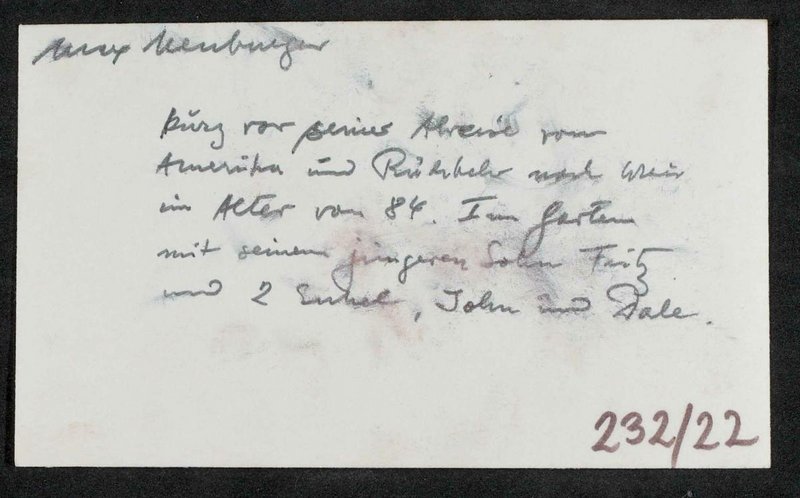 Max Neuburger
Kurz vor seiner Abreise vom
Amerika und Rückkehr nach Wien
im Alter von 84. Im Garten
mit seinem jüngeren Sohn Fritz
und 2 Enkel, John und Dale.
232/22